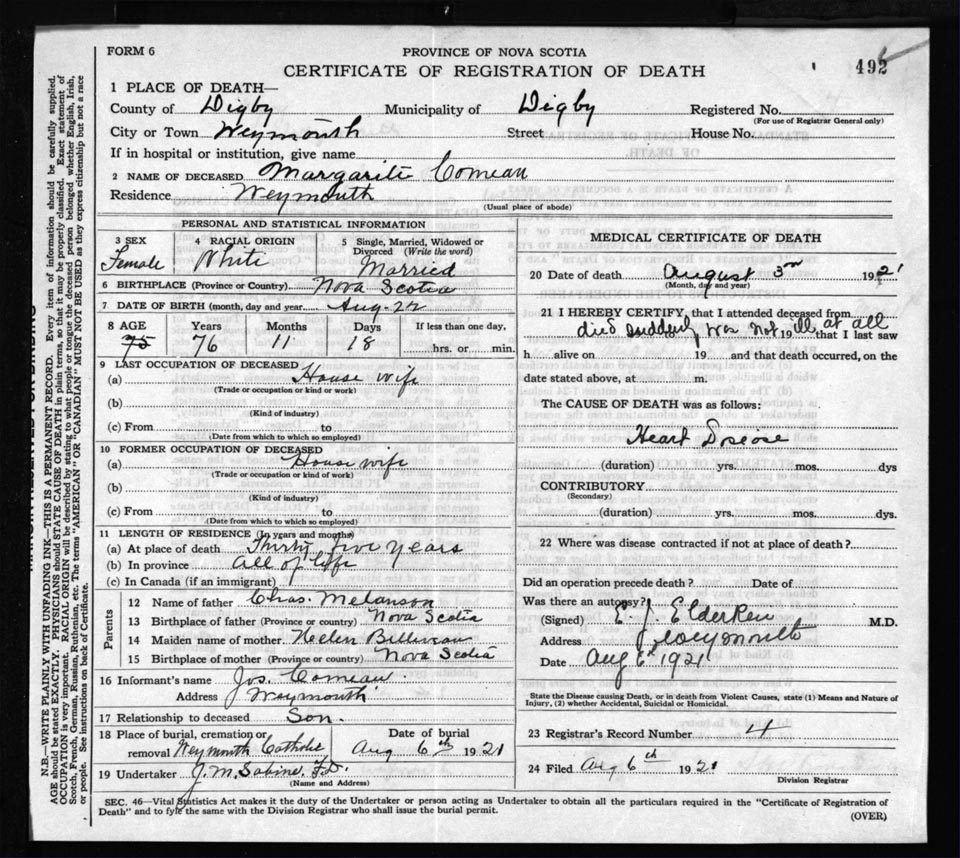 FORM 6
PROVINCE OF NOVA SCOTIA
CERTIFICATE OF REGISTRATION OF DEATH
492
1 PLACE OF DEATH—
County of Digby Municipality of Digby Registered No.
(For use of Registrar General only)
City or Town Weymouth Street House No.
If in hospital or institution, give name
2 NAME OF DECEASED Margarite Comeau
Residence Weymouth
(Usual place of abode)
PERSONAL AND STATISTICAL INFORMATION
3 SEX Female
4 RACIAL ORIGIN White
5 Single, Married, Widowed or Divorced (Write the word) Married
6 BIRTHPLACE (Province or Country) Nova Scotia
7 DATE OF BIRTH (month, day and year) Aug-22
8 AGE Years Months Days If less than one day,
75 76 11 18 hrs. or min.
9 LAST OCCUPATION OF DECEASED
(a) House wife
(Trade or occupation or kind of work)
(b)
(Kind of industry)
(c) From to
(Date from which to which so employed)
10 FORMER OCCUPATION OF DECEASED
(a) House wife
(Trade or occupation or kind of work)
(b)
(Kind of industry)
(c) From to
(Date from which to which so employed)
11 LENGTH OF RESIDENCE (In years and months)
(a) At place of death Thirty five years
(b) In province all of life
(c) In Canada (if an immigrant)
Parents
12 Name of father Chas. Melanson
13 Birthplace of father (Province or country) Nova Scotia
14 Maiden name of mother Helen Belliveau
15 Birthplace of mother (Province or country) Nova Scotia
16 Informant's name Jos. Comeau
Address Weymouth
17 Relationship to deceased Son.
18 Place of burial, cremation or removal Weymouth Catholic
Date of burial Aug 6th 1921
19 Undertaker J. M. Sabine. F.D.
(Name and Address)
MEDICAL CERTIFICATE OF DEATH
20 Date of death August 3rd 1921
(Month, day and year)
21 I HEREBY CERTIFY, that I attended deceased from
died suddenly was not 19 ill at all that I last saw
h alive on 19 and that death occurred, on the
date stated above, at m.
The CAUSE OF DEATH was as follows:
Heart Disease
(duration) yrs. mos. dys
CONTRIBUTORY
(Secondary)
(duration) yrs. mos. dys.
22 Where was disease contracted if not at place of death?
Did an operation precede death? Date of
Was there an autopsy?
(Signed) E. J. Elderkin M.D.
Address Weymouth
Date Aug 6th 1921
State the Disease causing Death, or in death from Violent Causes, state (1) Means and Nature of
Injury, (2) whether Accidental, Suicidal or Homicidal.
23 Registrar's Record Number 4
24 Filed Aug 6th 1921
Division Registrar
SEC. 46—Vital Statistics Act makes it the duty of the Undertaker or person acting as Undertaker to obtain all the particulars required in the "Certificate of Registration of
Death" and to fyle the same with the Division Registrar who shall issue the burial permit.
(OVER)
N.B.—WRITE PLAINLY WITH UNFADING INK—THIS IS A PERMANENT RECORD. Every item of information should be carefully supplied.
AGE should be stated EXACTLY. PHYSICIANS should STATE CAUSE OF DEATH in plain terms, so that it may be properly classified. Exact statement of
OCCUPATION is very important. RACIAL ORIGIN will be described by stating to what people or tongue the deceased person belonged whether English, Irish,
Scotch, French, German, Russian, Ruthenian, etc. The terms "AMERICAN" OR "CANADIAN" MUST NOT BE USED as they express citizenship but not a race
or people. See instructions on back of Certificate.